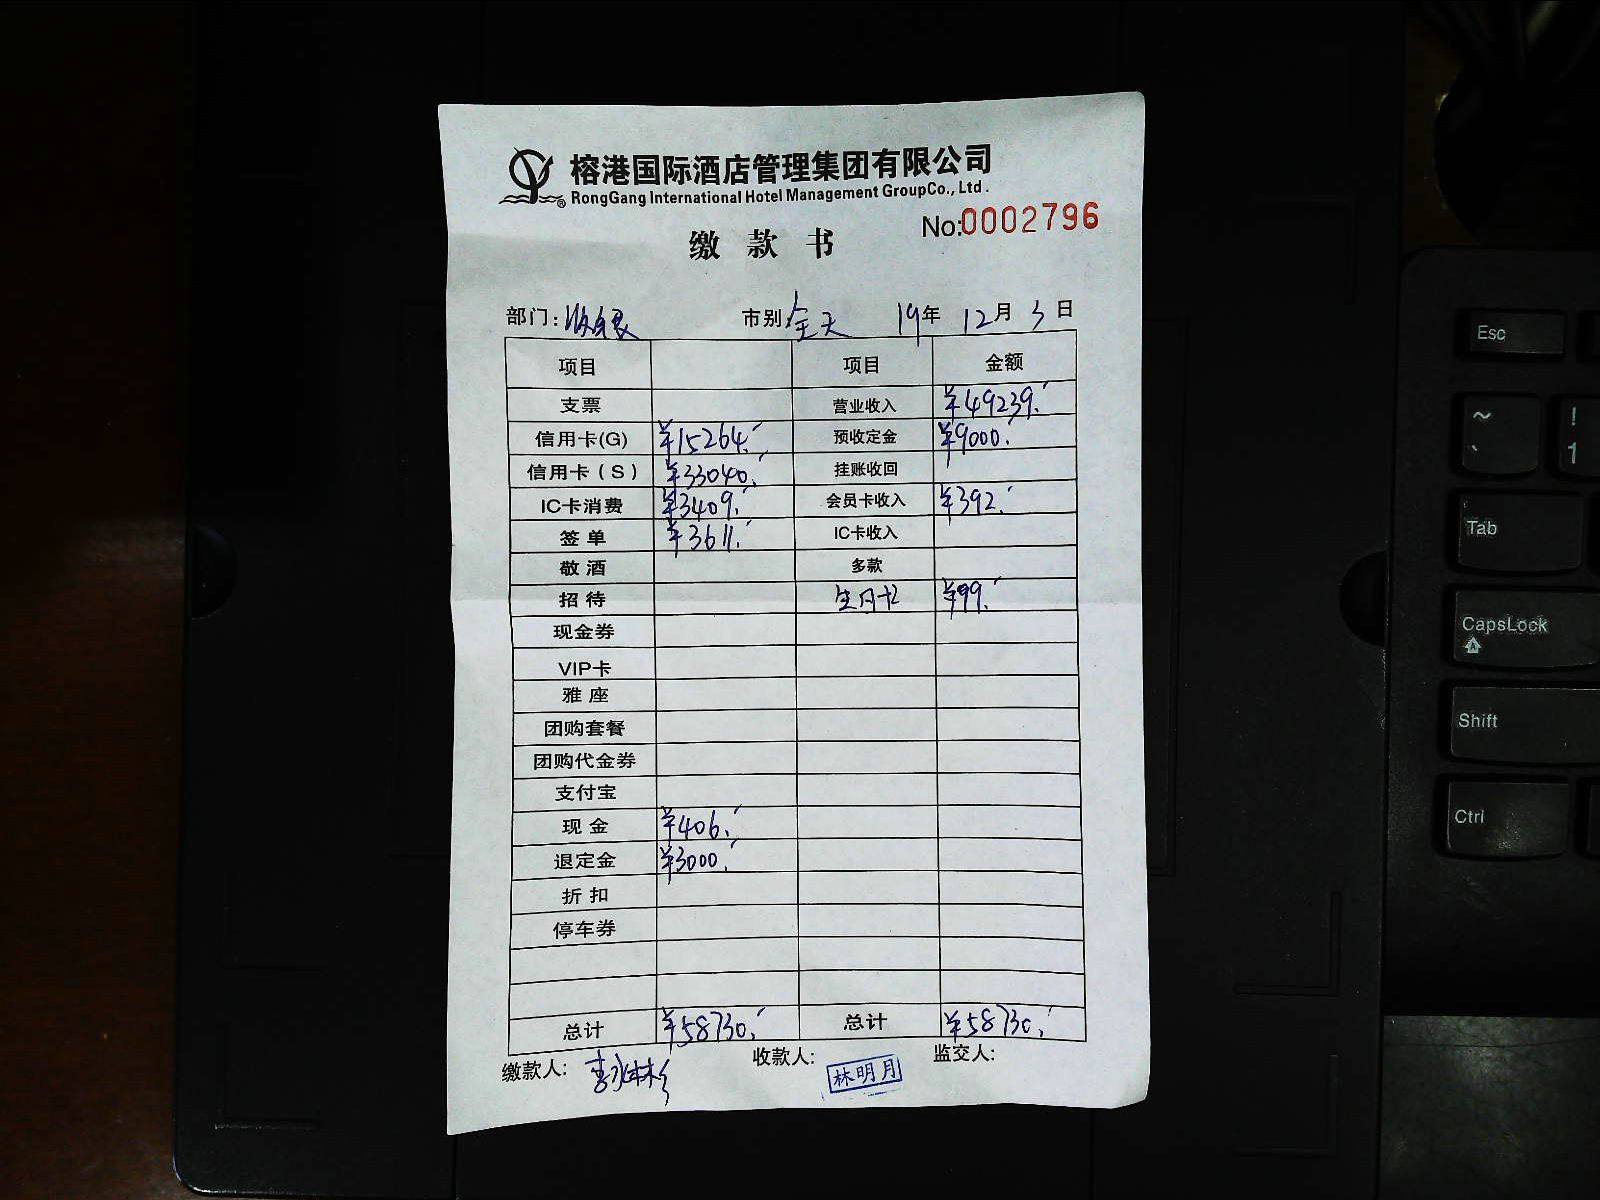 榕港国际酒店管理集团有限公司
RongGang International Hotel Management GroupCo., Ltd.
No:0002796
缴 款 书
部门:收银 市别:全天 19年 12月 3日
项目 项目 金额
支票 营业收入 ¥49239.
信用卡(G) ¥15264. 预收定金 ¥9000.
信用卡(S) ¥33040. 挂账收回
IC卡消费 ¥3409. 会员卡收入 ¥392.
签单 ¥3611. IC卡收入
敬酒 多款
招待 生日卡 ¥99.
现金券
VIP卡
雅座
团购套餐
团购代金券
支付宝
现金 ¥406.
退定金 ¥3000.
折扣
停车券
总计 ¥58730. 总计 ¥58730.
缴款人: 收款人: 林明月 监交人:
Esc
~ ` ! 1
Tab
CapsLock
Shift
Ctrl